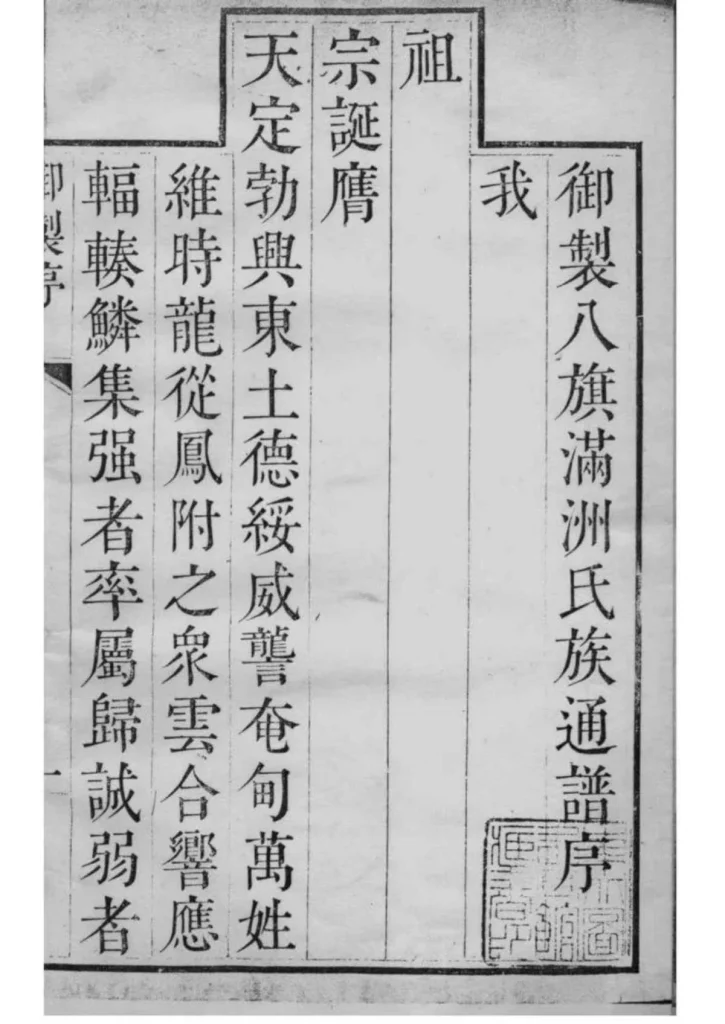 御製八旗滿洲氏族通譜序
我
祖
宗誕膺
天定勃興東土德綏威讋奄甸萬姓
維時龍從鳳附之衆雲合響應
輻輳鱗集强者率屬歸誠弱者
御製序
一